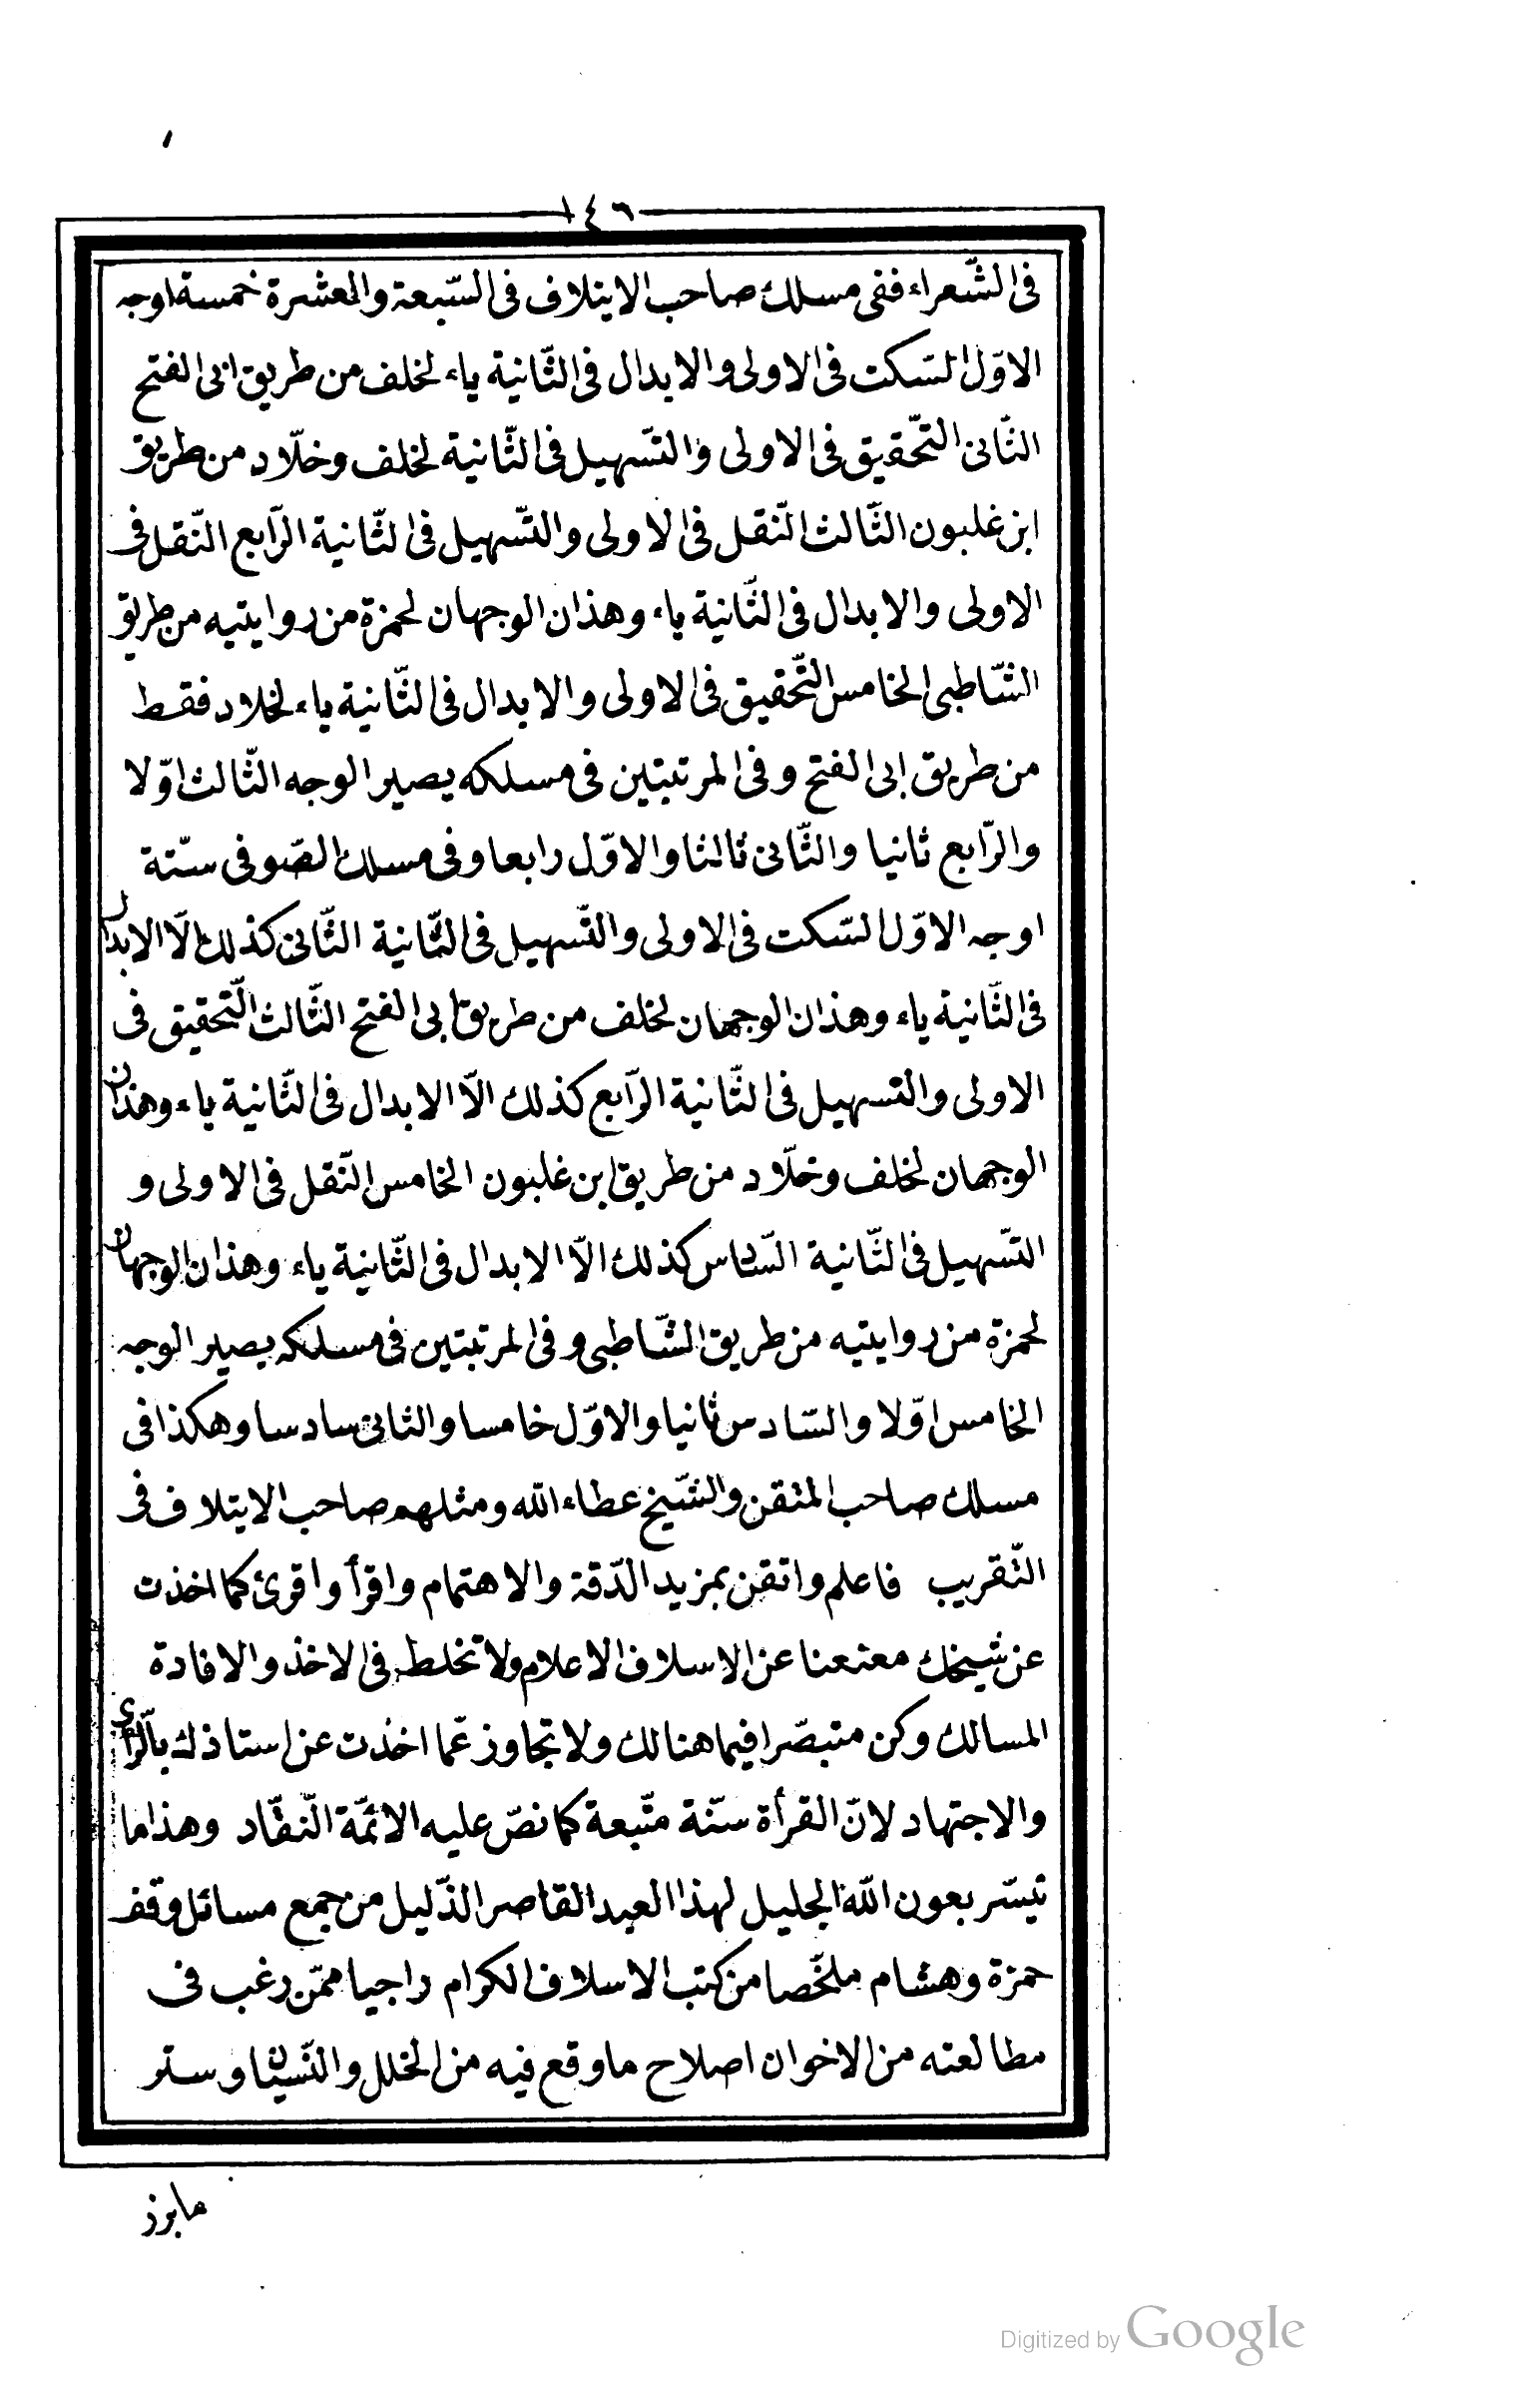 ١٤٦
فى الشّعراء ففى مسلك صاحب الايتلاف فى السّبعة والعشرة خمسة اوجه
الاوّل السّكت فى الاولى والابدال فى الثّانية ياء لخلف من طريق ابى الفتح
الثّانى التّحقيق فى الاولى والتّسهيل فى الثّانية لخلف وخلّاد من طريق
ابن غلبون الثّالث النّقل فى الاولى والتّسهيل فى الثّانية الرّابع النّقل فى
الاولى والابدال فى الثّانية ياء وهذان الوجهان لحمزة من روايتيه من طريق
الشّاطبى الخامس التّحقيق فى الاولى والابدال فى الثّانية ياء لخلاد فقط
من طريق ابى الفتح وفى المرتبتين فى مسلكه يصير الوجه الثّالث اوّلا
والرّابع ثانيا والثّانى ثالثا والاوّل رابعا وفى مسلك الصّوفى ستّة
اوجه الاوّل السّكت فى الاولى والتّسهيل فى الثّانية الثّانى كذلك الّا الابدال
فى الثّانية ياء وهذان الوجهان لخلف من طريق ابى الفتح الثّالث التّحقيق فى
الاولى والتّسهيل فى الثّانية الرّابع كذلك الّا الابدال فى الثّانية ياء وهذان
الوجهان لخلف وخلّاد من طريق ابن غلبون الخامس النّقل فى الاولى و
التّسهيل فى الثّانية السّادس كذلك الّا الابدال فى الثّانية ياء وهذان الوجهان
لحمزة من روايتيه من طريق الشّاطبى وفى المرتبتين فى مسلكه يصير الوجه
الخامس اوّلا والسّادس ثانيا والاوّل خامسا والثانى سادسا وهكذا فى
مسلك صاحب المتقن والشّيخ عطاء اللّه ومثلهم صاحب الايتلاف فى
التّقريب فاعلم واتقن بمزيد الدّقة والاهتمام واقرأ واقرئ كما اخذت
عن شيخك معنعنا عن الاسلاف الاعلام ولا تخلط فى الاخذ والافادة
المسالك وكن متبصّرا فيما هنالك ولا تجاوز عمّا اخذت عن استاذك بالرّأى
والاجتهاد لانّ القرأة سنّة متّبعة كما نصّ عليه الائمّة النّقّاد وهذا ما
تيسّر بعون اللّه الجليل لهذا العبد القاصر الذّليل من جمع مسائل وقف
حمزة وهشام ملخّصا من كتب الاسلاف الكرام راجيا ممّن رغب فى
مطالعته من الاخوان اصلاح ما وقع فيه من الخلل والنّسيان وستر
ما برز
Digitized by Google